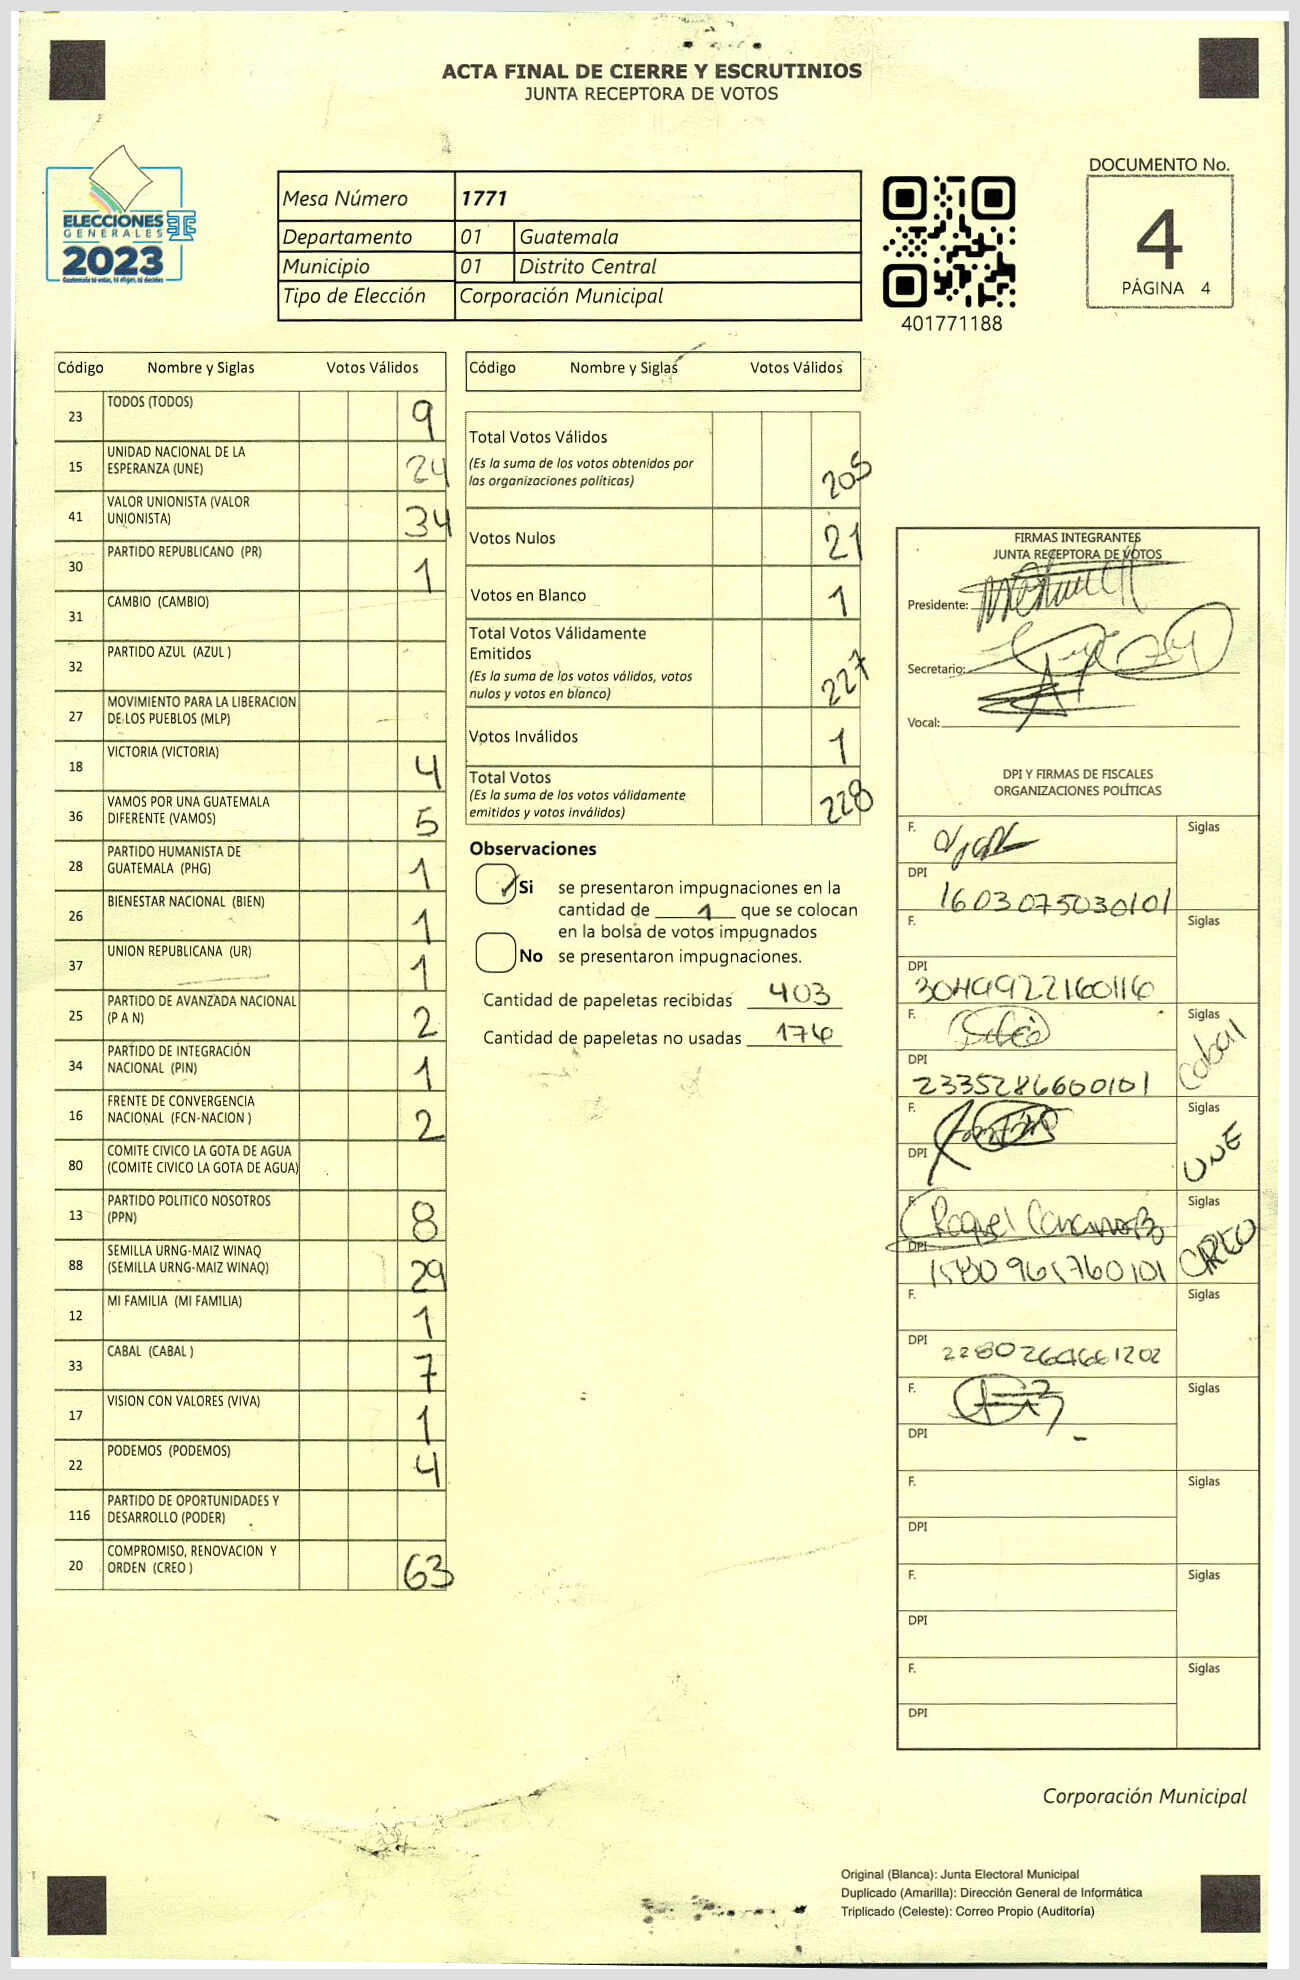 ACTA FINAL DE CIERRE Y ESCRUTINIOS
JUNTA RECEPTORA DE VOTOS
ELECCIONES
GENERALES
2023
Guatemala tú votas, tú eliges, tú decides
Mesa Número 1771
Departamento 01 Guatemala
Municipio 01 Distrito Central
Tipo de Elección Corporación Municipal
401771188
DOCUMENTO No.
4
PÁGINA 4
Código Nombre y Siglas Votos Válidos
23 TODOS (TODOS) 9
15 UNIDAD NACIONAL DE LA
ESPERANZA (UNE) 24
41 VALOR UNIONISTA (VALOR
UNIONISTA) 34
30 PARTIDO REPUBLICANO (PR) 1
31 CAMBIO (CAMBIO)
32 PARTIDO AZUL (AZUL )
27 MOVIMIENTO PARA LA LIBERACION
DE LOS PUEBLOS (MLP)
18 VICTORIA (VICTORIA) 4
36 VAMOS POR UNA GUATEMALA
DIFERENTE (VAMOS) 5
28 PARTIDO HUMANISTA DE
GUATEMALA (PHG) 1
26 BIENESTAR NACIONAL (BIEN) 1
37 UNION REPUBLICANA (UR) 1
25 PARTIDO DE AVANZADA NACIONAL
(P A N) 2
34 PARTIDO DE INTEGRACIÓN
NACIONAL (PIN) 1
16 FRENTE DE CONVERGENCIA
NACIONAL (FCN-NACION ) 2
80 COMITE CIVICO LA GOTA DE AGUA
(COMITE CIVICO LA GOTA DE AGUA)
13 PARTIDO POLITICO NOSOTROS
(PPN) 8
88 SEMILLA URNG-MAIZ WINAQ
(SEMILLA URNG-MAIZ WINAQ) 29
12 MI FAMILIA (MI FAMILIA) 1
33 CABAL (CABAL ) 7
17 VISION CON VALORES (VIVA) 1
22 PODEMOS (PODEMOS) 4
116 PARTIDO DE OPORTUNIDADES Y
DESARROLLO (PODER)
20 COMPROMISO, RENOVACION Y
ORDEN (CREO ) 63
Código Nombre y Siglas Votos Válidos
Total Votos Válidos
(Es la suma de los votos obtenidos por
las organizaciones políticas) 205
Votos Nulos 21
Votos en Blanco 1
Total Votos Válidamente
Emitidos
(Es la suma de los votos válidos, votos
nulos y votos en blanco) 227
Votos Inválidos 1
Total Votos
(Es la suma de los votos válidamente
emitidos y votos inválidos) 228
Observaciones
Si se presentaron impugnaciones en la
cantidad de 1 que se colocan
en la bolsa de votos impugnados
No se presentaron impugnaciones.
Cantidad de papeletas recibidas 403
Cantidad de papeletas no usadas 176
FIRMAS INTEGRANTES
JUNTA RECEPTORA DE VOTOS
Presidente:
Secretario:
Vocal:
DPI Y FIRMAS DE FISCALES
ORGANIZACIONES POLÍTICAS
F. Siglas
DPI 1603075030101
F.
DPI 3049992160116
F. Siglas
DPI 2335286600101 Cabal
F. Siglas
DPI UNE
F. Raquel Siglas
DPI CREO
F. Siglas
DPI 2280264661202
F. Siglas
DPI
F. Siglas
DPI
F. Siglas
DPI
F. Siglas
DPI
Corporación Municipal
Original (Blanca): Junta Electoral Municipal
Duplicado (Amarilla): Dirección General de Informática
Triplicado (Celeste): Correo Propio (Auditoría)